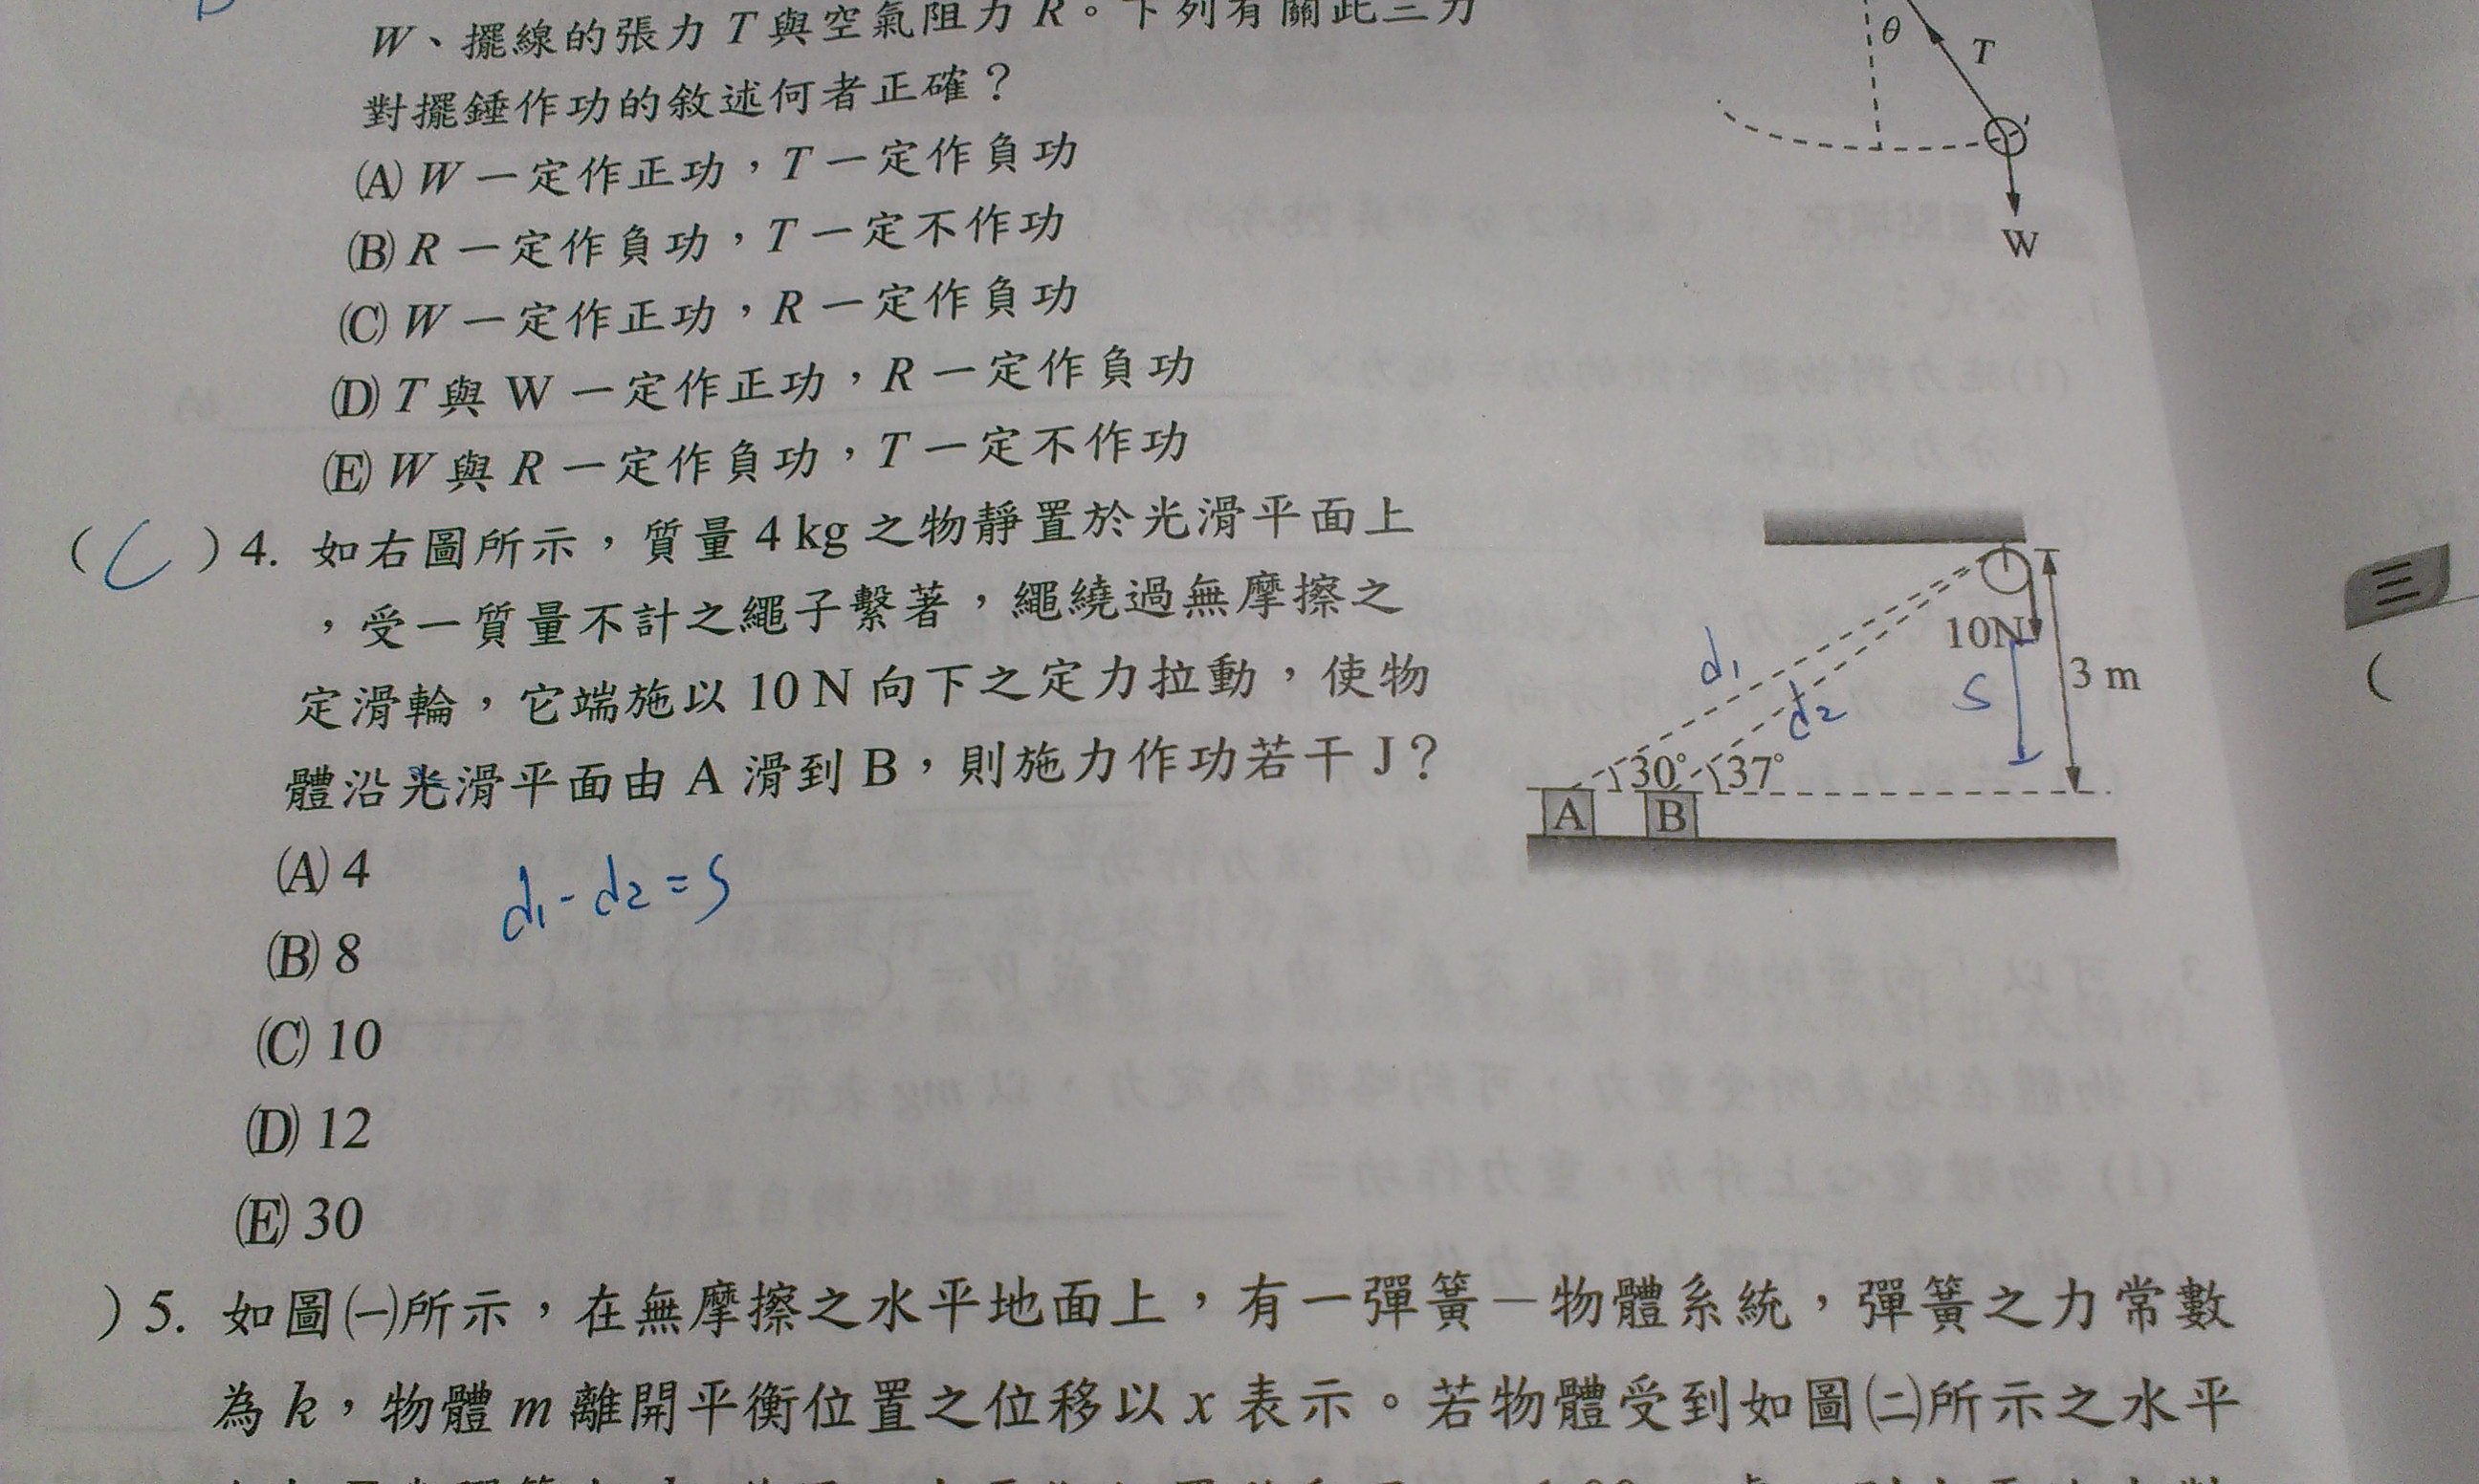 W、擺線的張力 T 與空氣阻力 R。下列有關此三力
對擺錘作功的敘述何者正確？
(A) W 一定作正功，T 一定作負功
(B) R 一定作負功，T 一定不作功
(C) W 一定作正功，R 一定作負功
(D) T 與 W 一定作正功，R 一定作負功
(E) W 與 R 一定作負功，T 一定不作功
θ
T
W
( C ) 4. 如右圖所示，質量 4 kg 之物靜置於光滑平面上
，受一質量不計之繩子繫著，繩繞過無摩擦之
定滑輪，它端施以 10 N 向下之定力拉動，使物
體沿光滑平面由 A 滑到 B，則施力作功若干 J？
(A) 4
(B) 8
(C) 10
(D) 12
(E) 30
d1 - d2 = S
10N
d1
d2
S
3 m
30°
37°
A
B
) 5. 如圖(一)所示，在無摩擦之水平地面上，有一彈簧－物體系統，彈簧之力常數
為 k，物體 m 離開平衡位置之位移以 x 表示。若物體受到如圖(二)所示之水平
三
(